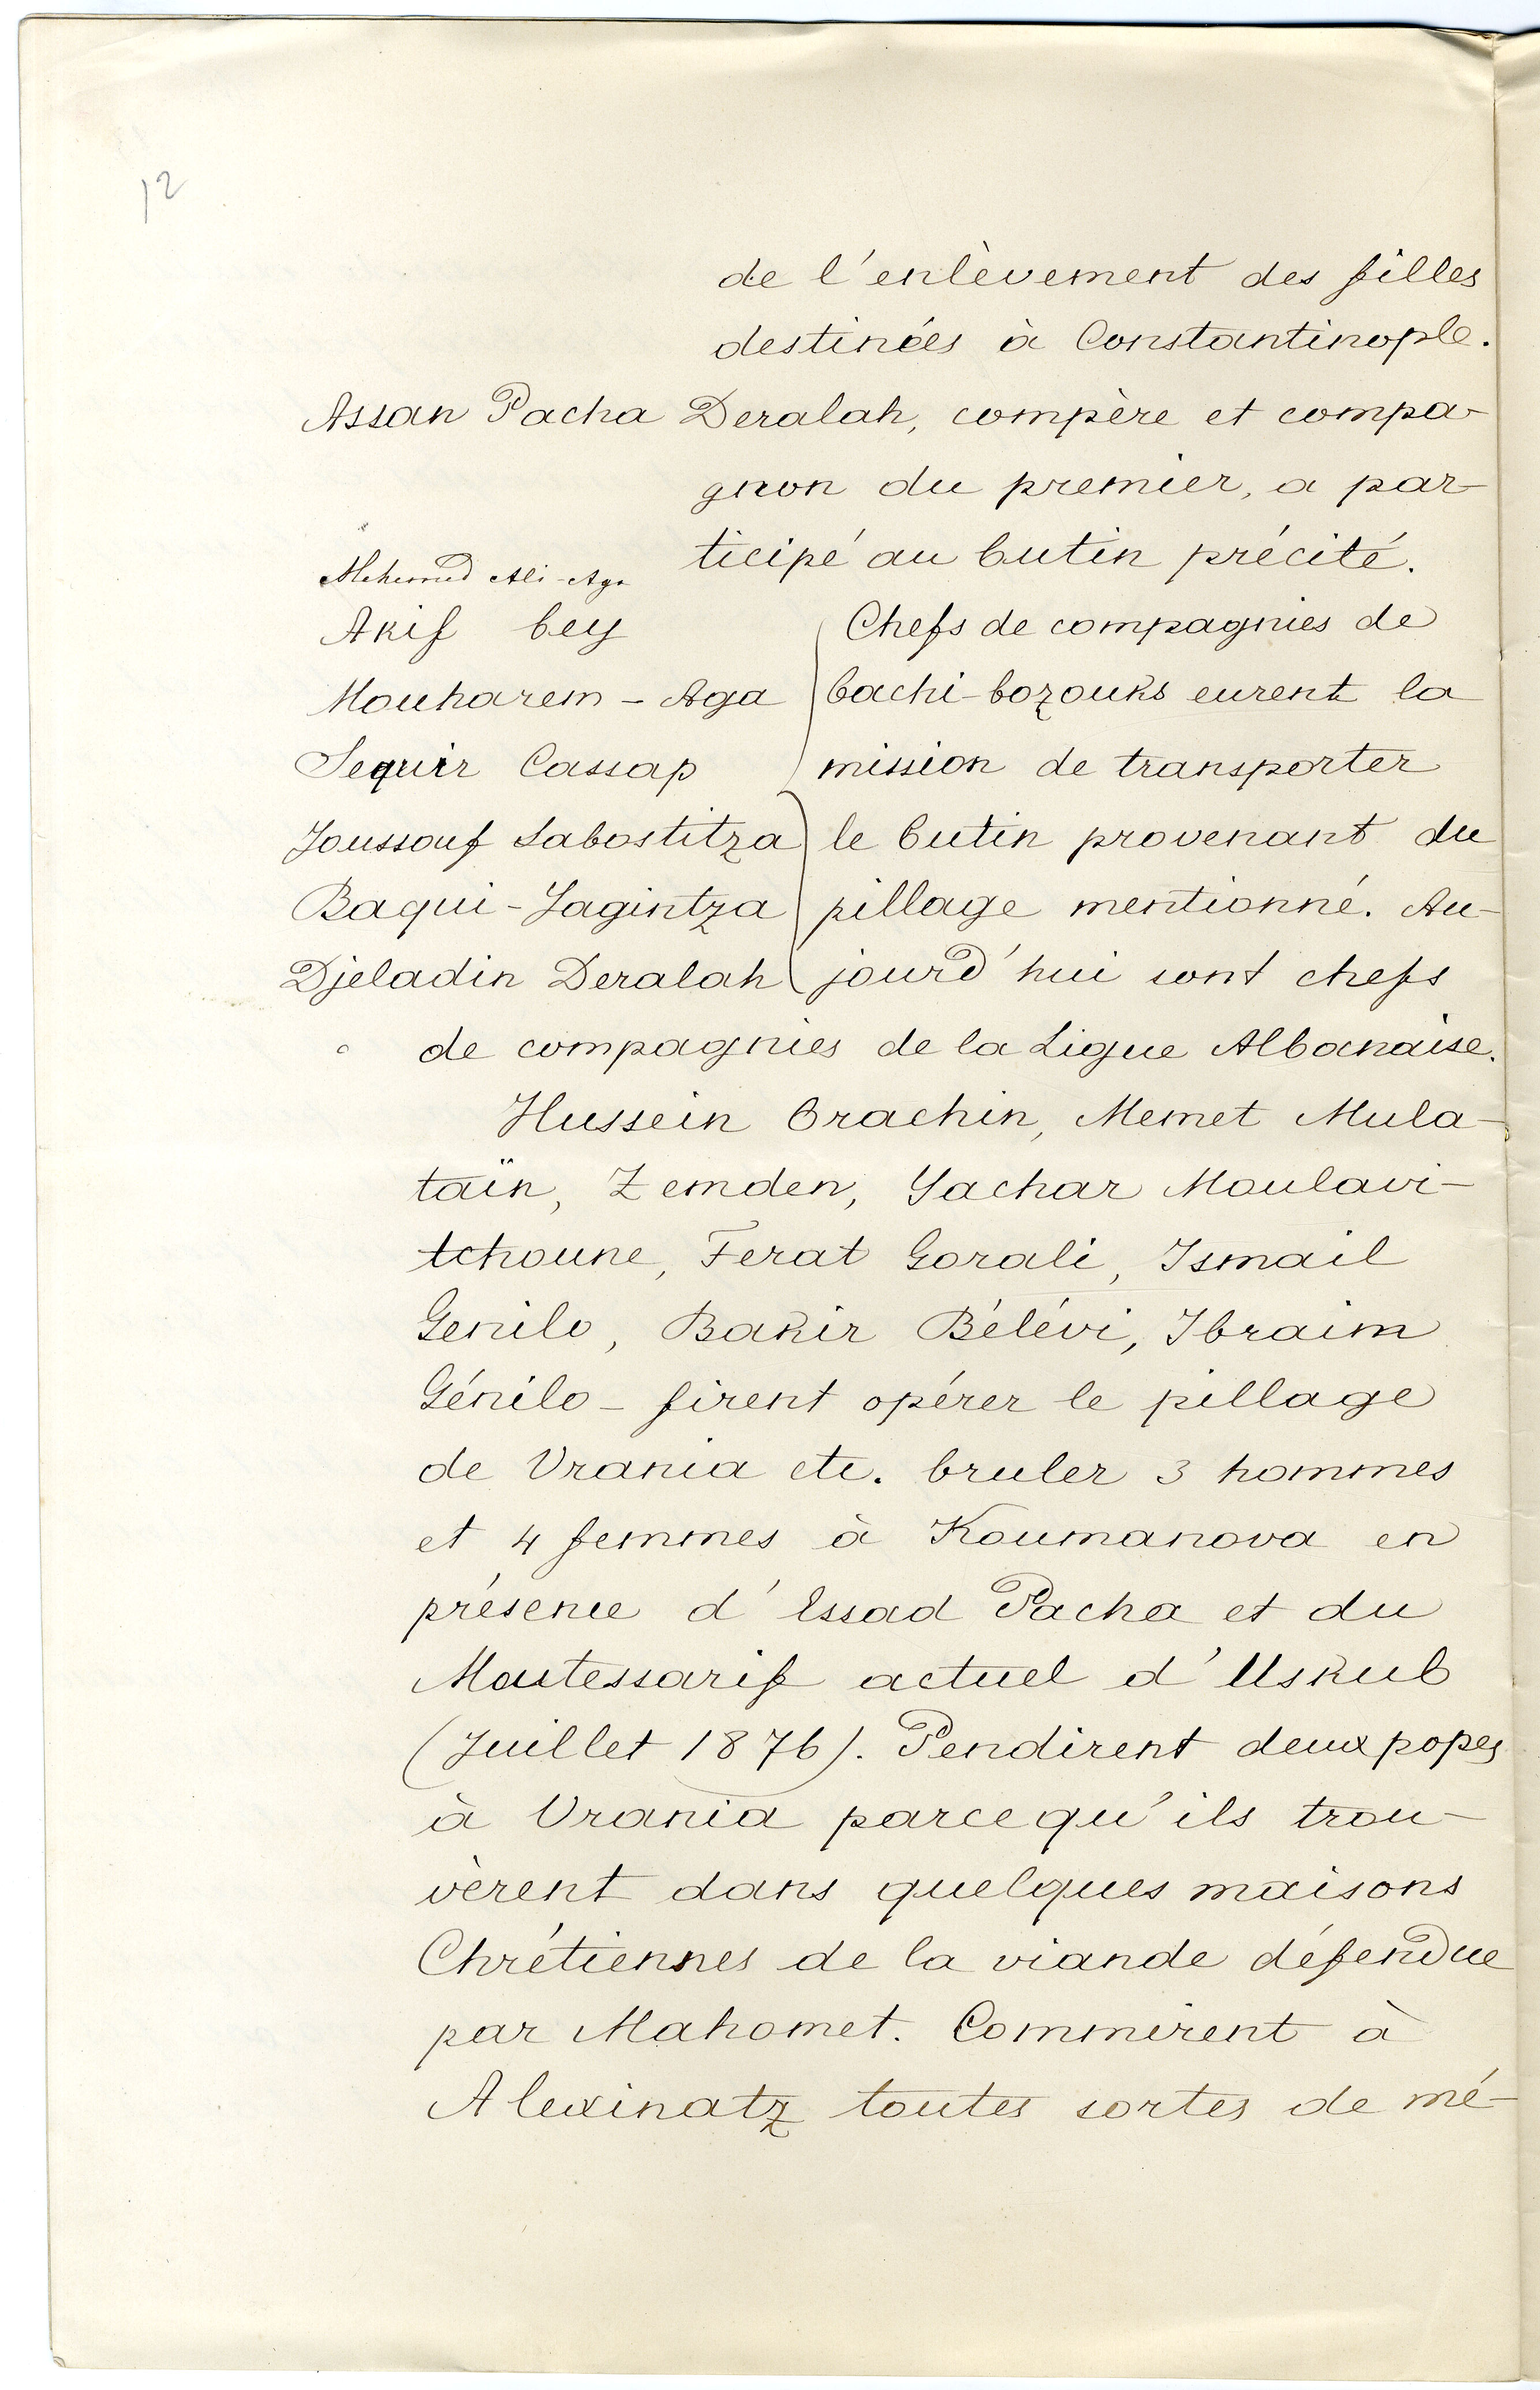 12
de l'enlèvement des filles
destinées à Constantinople.
Assan Pacha Deralah, compère et compa-
gnon du premier, a par-
ticipé au butin précité.
Mehemed Ali-Aga
Akif bey Chefs de compagnies de
Mouharem-Aga bachi-bozouks eurent la
Sequir Cassap mission de transporter
Joussouf Sabostitza le butin provenant du
Baqui-Jagintza pillage mentionné. Au-
Djeladin Deralah jourd'hui sont chefs
de compagnies de la Ligue Albanaise.
Hussein Orachin, Memet Mula-
taïn, Zemden, Yachar Moulavi-
tchoune, Ferat Gorali, Ismail
Genilo, Bakir Bélévi, Ibraim
Génilo - firent opérer le pillage
de Vrania etc. bruler 3 hommes
et 4 femmes à Koumanova en
présence d'Essad Pacha et du
Moutessarif actuel d'Uskub
(Juillet 1876). Pendirent deux popes
à Vrania parcequ'ils trou-
vèrent dans quelques maisons
Chrétiennes de la viande défendue
par Mahomet. Commirent à
Alexinatz toutes sortes de mé-